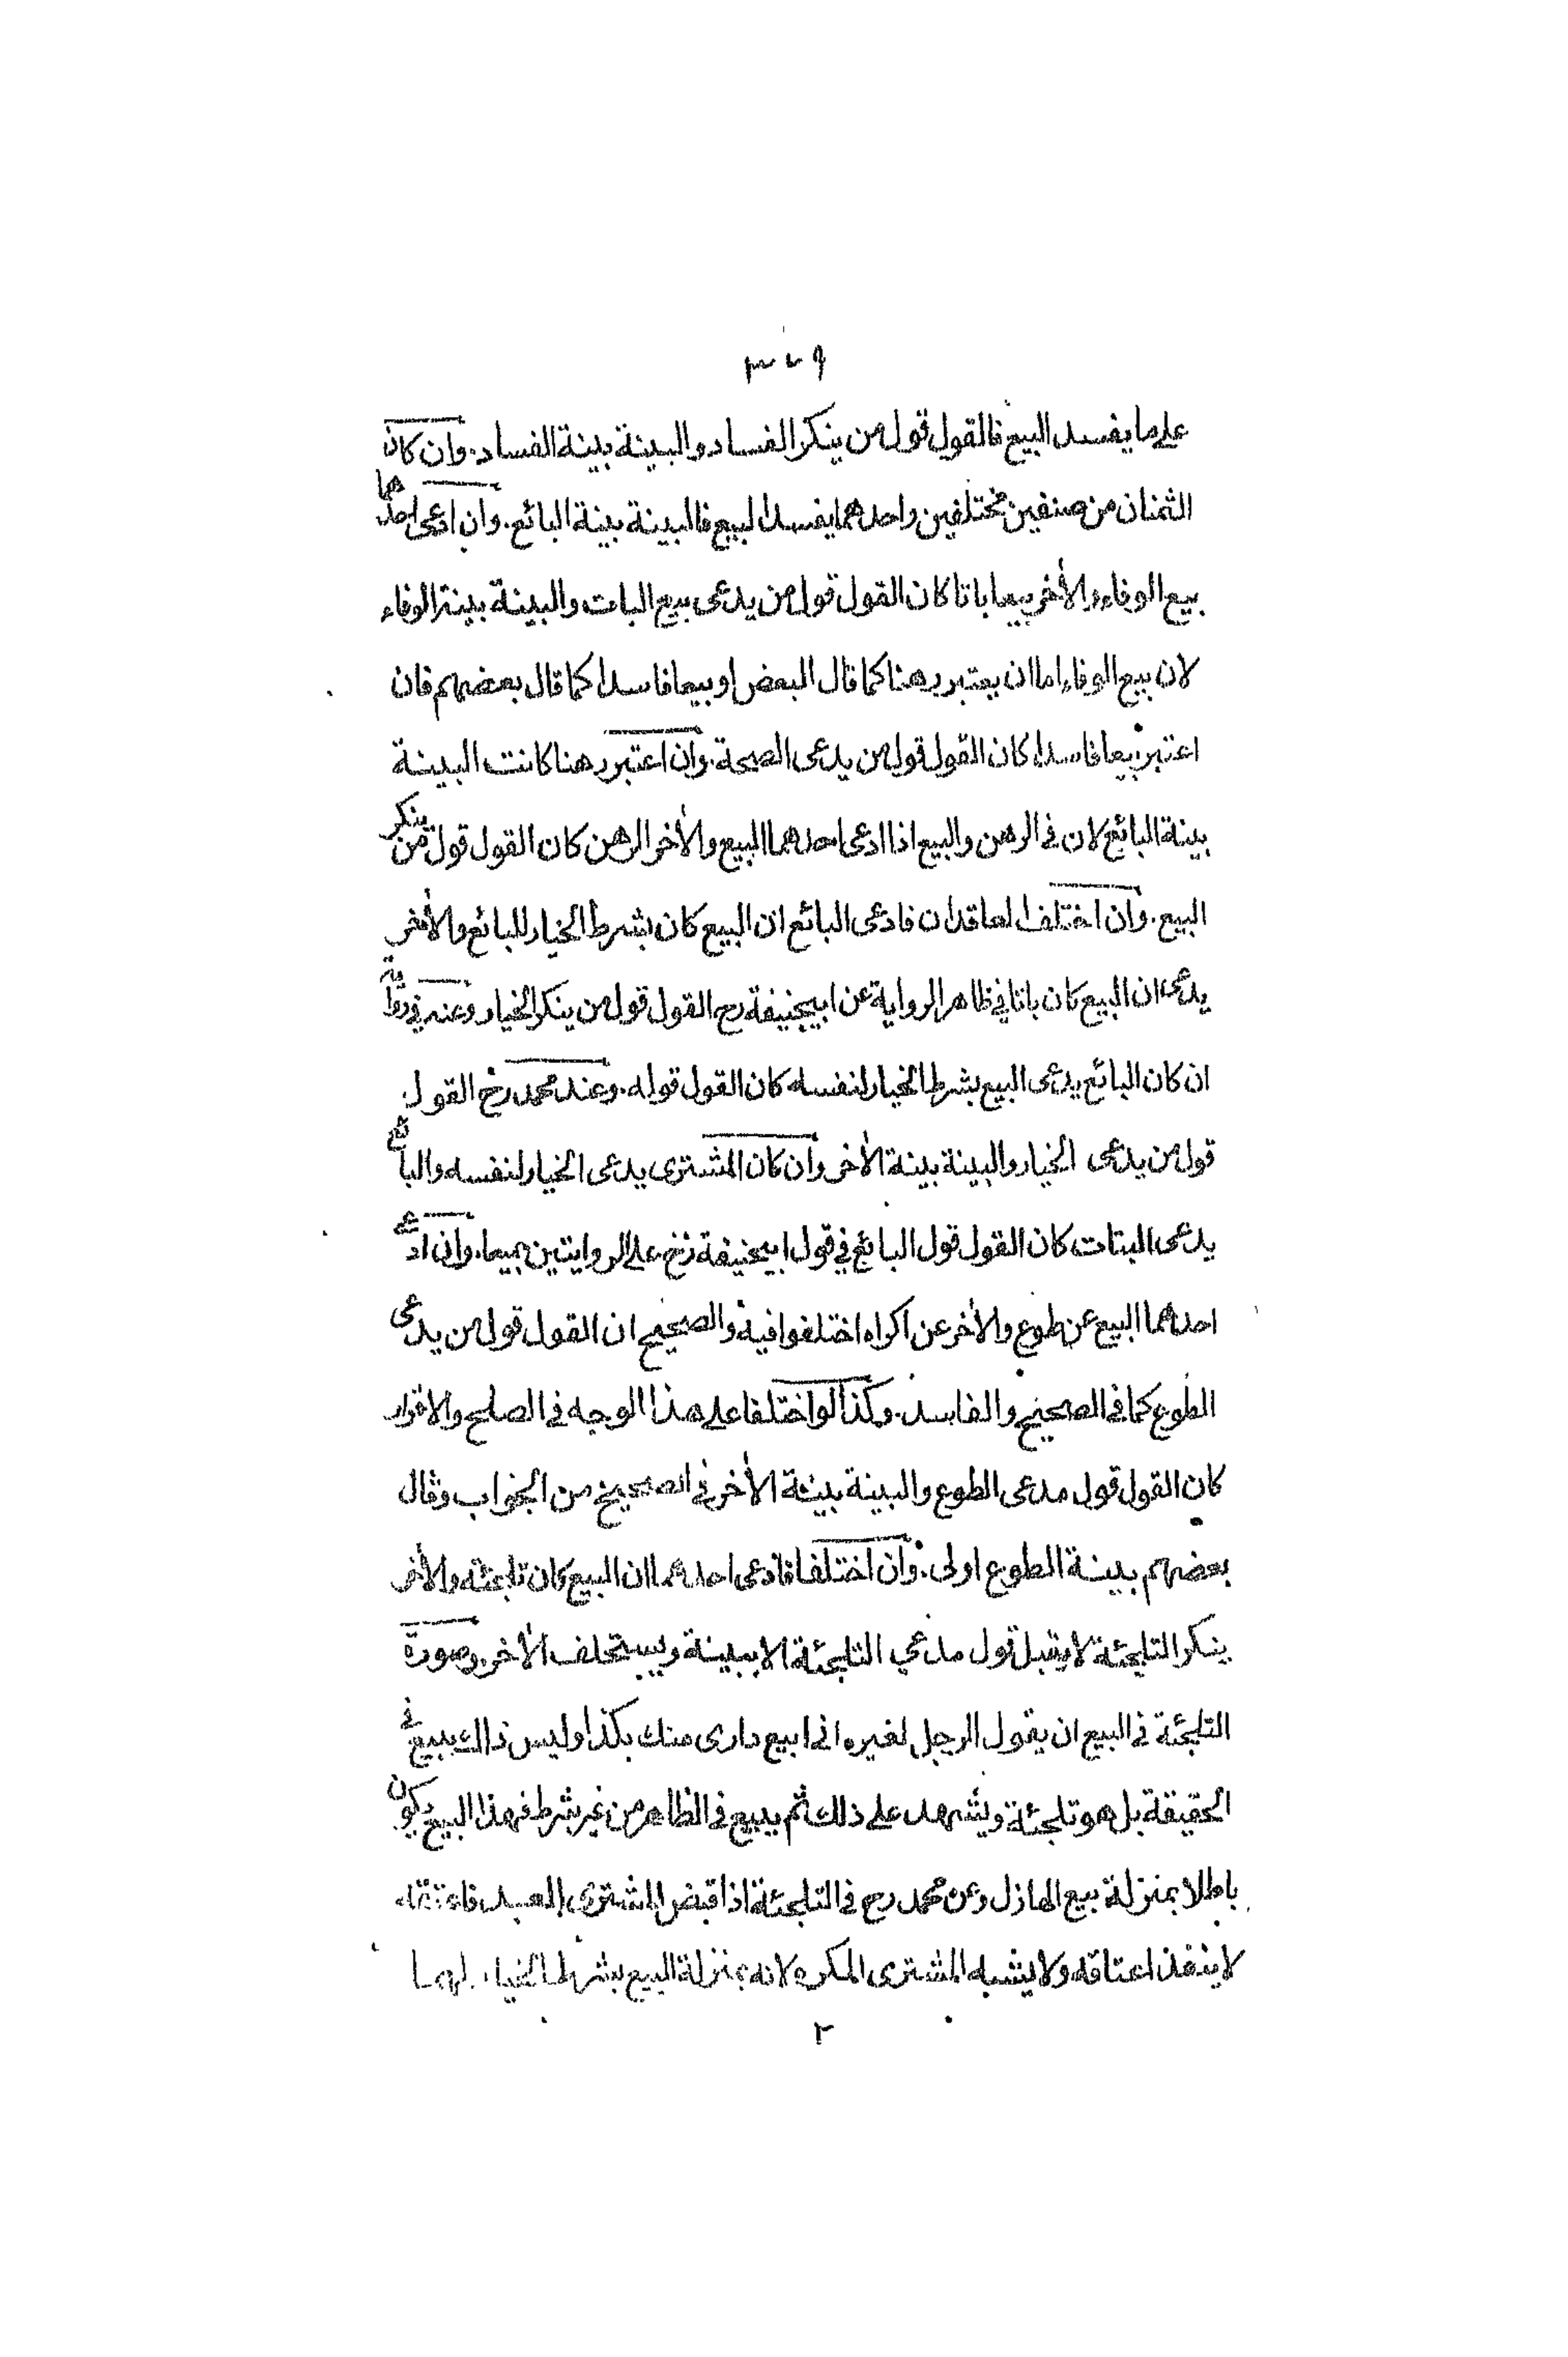 ٣٧٩
على ما يفسد البيع فالقول قول من ينكر الفساد والبينة بينة الفساد. وان كان
الثمنان من صنفين مختلفين واحدهما يفسد البيع فالبينة بينة البائع. وان ادعى احدهما
بيع الوفاء والأخر بيعا باتا كان القول قول من يدعى بيع البات والبينة بينة الوفاء
لان بيع الوفاء اما ان يعتبر رهنا كما قال البعض او بيعا فاسدا كما قال بعضهم فان
اعتبر بيعا فاسدا كان القول قول من يدعى الصحة. وان اعتبر رهنا كانت البينة
بينة البائع لان فى الرهن والبيع اذا ادعى احدهما البيع والأخر الرهن كان القول قول من ينكر
البيع. وان اختلف العاقدان فادعى البائع ان البيع كان بشرط الخيار للبائع والأخر
يدعى ان البيع كان باتا فى ظاهر الرواية عن ابيحنيفة رح القول قول من ينكر الخيار وعنه فى رواية
ان كان البائع يدعى البيع بشرط الخيار لنفسه كان القول قوله. وعند محمد رح القول
قول من يدعى الخيار والبينة بينة الأخر وان كان المشترى يدعى الخيار لنفسه والبائع
يدعى البتات كان القول قول البائع فى قول ابيحنيفة رح على الروايتين جميعا. وان ادعى
احدهما البيع عن طوع والأخر عن اكراه اختلفوا فيه والصحيح ان القول قول من يدعى
الطوع كما فى الصحيح والفاسد. وكذا لو اختلفا على هذا الوجه فى الصلح والاقرار
كان القول قول مدعى الطوع والبينة بينة الأخر فى الصحيح من الجواب وقال
بعضهم بينة الطوع اولى. وان اختلفا فادعى احدهما ان البيع كان تلجئة والأخر
ينكر التلجئة لا يقبل قول مدعي التلجئة الا ببينة ويستحلف الأخر. وصورة
التلجئة فى البيع ان يقول الرجل لغيره انى ابيع دارى منك بكذا وليس ذالك ببيع فى
الحقيقة بل هو تلجئة ويشهد على ذلك ثم يبيع فى الظاهر من غير شرط فهذا البيع يكون
باطلا بمنزلة بيع الهازل وعن محمد رح فى التلجئة اذا قبض المشترى العبد فاعتقه
لا ينفذ اعتاقه ولا يشبه المشترى المكره لانه بمنزلة البيع بشرط الخيار لهما
٢